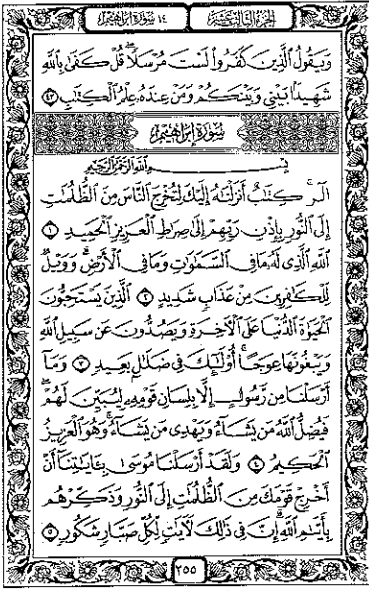 الجزء الثالث عشر ١٤ سورة إبراهيم
وَيَقُولُ الَّذِينَ كَفَرُوا۟ لَسْتَ مُرْسَلًا ۚ قُلْ كَفَىٰ بِاللَّهِ
شَهِيدًۢا بَيْنِى وَبَيْنَكُمْ وَمَنْ عِندَهُۥ عِلْمُ الْكِتَـٰبِ ٤٣
سُورَةُ إِبْرَاهِيمَ
بِسْمِ اللَّهِ الرَّحْمَـٰنِ الرَّحِيمِ
الٓر ۚ كِتَـٰبٌ أَنزَلْنَـٰهُ إِلَيْكَ لِتُخْرِجَ النَّاسَ مِنَ الظُّلُمَـٰتِ
إِلَى النُّورِ بِإِذْنِ رَبِّهِمْ إِلَىٰ صِرَٰطِ الْعَزِيزِ الْحَمِيدِ ١
اللَّهِ الَّذِى لَهُۥ مَا فِى السَّمَـٰوَٰتِ وَمَا فِى الْأَرْضِ ۗ وَوَيْلٌ
لِّلْكَـٰفِرِينَ مِنْ عَذَابٍ شَدِيدٍ ٢ الَّذِينَ يَسْتَحِبُّونَ
الْحَيَوٰةَ الدُّنْيَا عَلَى الْـَٔاخِرَةِ وَيَصُدُّونَ عَن سَبِيلِ اللَّهِ
وَيَبْغُونَهَا عِوَجًا ۚ أُو۟لَـٰٓئِكَ فِى ضَلَـٰلٍۭ بَعِيدٍ ٣ وَمَآ
أَرْسَلْنَا مِن رَّسُولٍ إِلَّا بِلِسَانِ قَوْمِهِۦ لِيُبَيِّنَ لَهُمْ ۖ
فَيُضِلُّ اللَّهُ مَن يَشَآءُ وَيَهْدِى مَن يَشَآءُ ۚ وَهُوَ الْعَزِيزُ
الْحَكِيمُ ٤ وَلَقَدْ أَرْسَلْنَا مُوسَىٰ بِـَٔايَـٰتِنَآ أَنْ
أَخْرِجْ قَوْمَكَ مِنَ الظُّلُمَـٰتِ إِلَى النُّورِ وَذَكِّرْهُم
بِأَيَّىٰمِ اللَّهِ ۚ إِنَّ فِى ذَٰلِكَ لَـَٔايَـٰتٍ لِّكُلِّ صَبَّارٍ شَكُورٍ ٥
٢٥٥